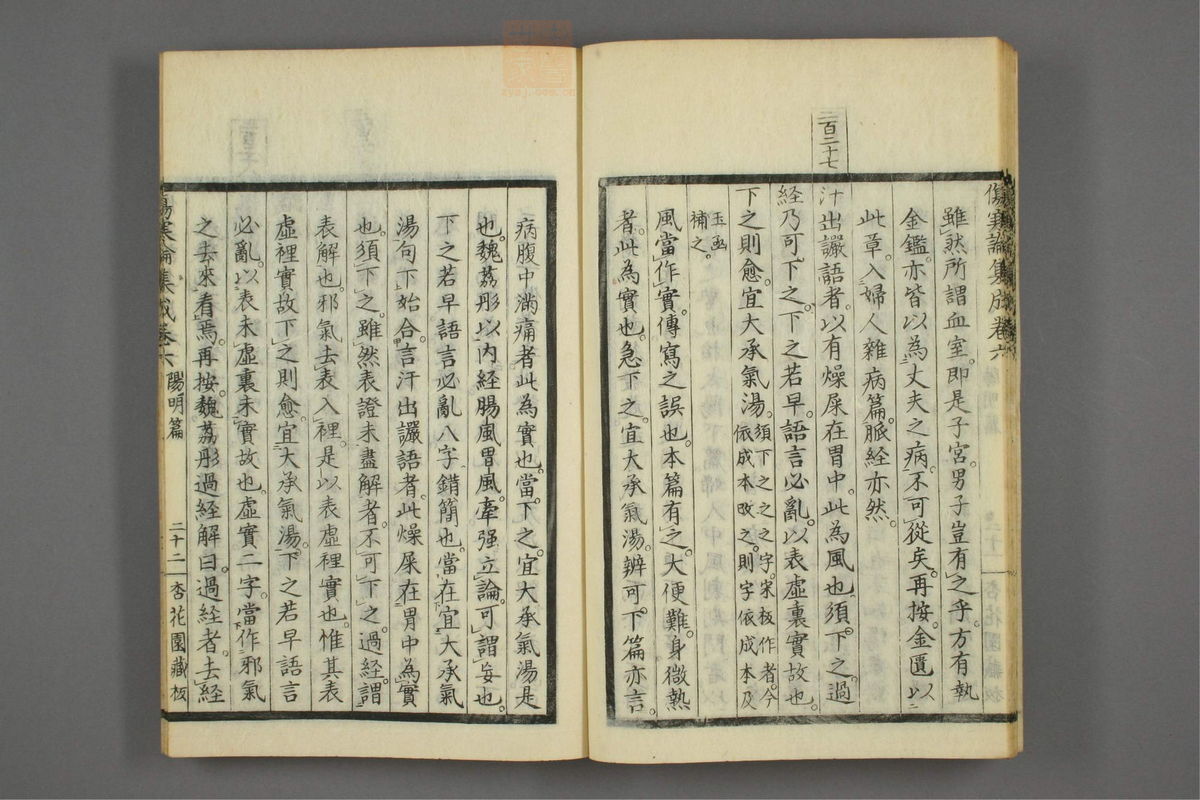 傷寒論集成卷六
雖然所謂血室即是子宮男子豈有之乎方有執
金鑑亦皆以為丈夫之病不可從矣再按金匱以
此章入婦人雜病篇脈經亦然
二百二十七
汗出讝語者以有燥屎在胃中此為風也須下之過
經乃可下之下之若早語言必亂以表虛裏實故也
下之則愈宜大承氣湯須下之之字宋板作者今
依成本改之則字依成本及
玉函
補之
風當作實傳寫之誤也本篇有之大便難身微熱
者此為實也急下之宜大承氣湯辨可下篇亦言
病腹中滿痛者此為實也當下之宜大承氣湯是
也魏荔彤以內經腸風胃風牽强立論可謂妄也
下之若早語言必亂八字錯簡也當在宜大承氣
湯句下始合言汗出讝語者此燥屎在胃中為實
也須下之雖然表證未盡解者不可下之過經謂
表解也邪氣去表入裡是以表虛裡實也惟其表
虛裡實故下之則愈宜大承氣湯下之若早語言
必亂以表未虛裏未實故也虛實二字當作邪氣
之去來看焉再按魏荔彤過經解曰過經者去經
傷寒論集成卷六 陽明篇 二十二 杏花園藏板